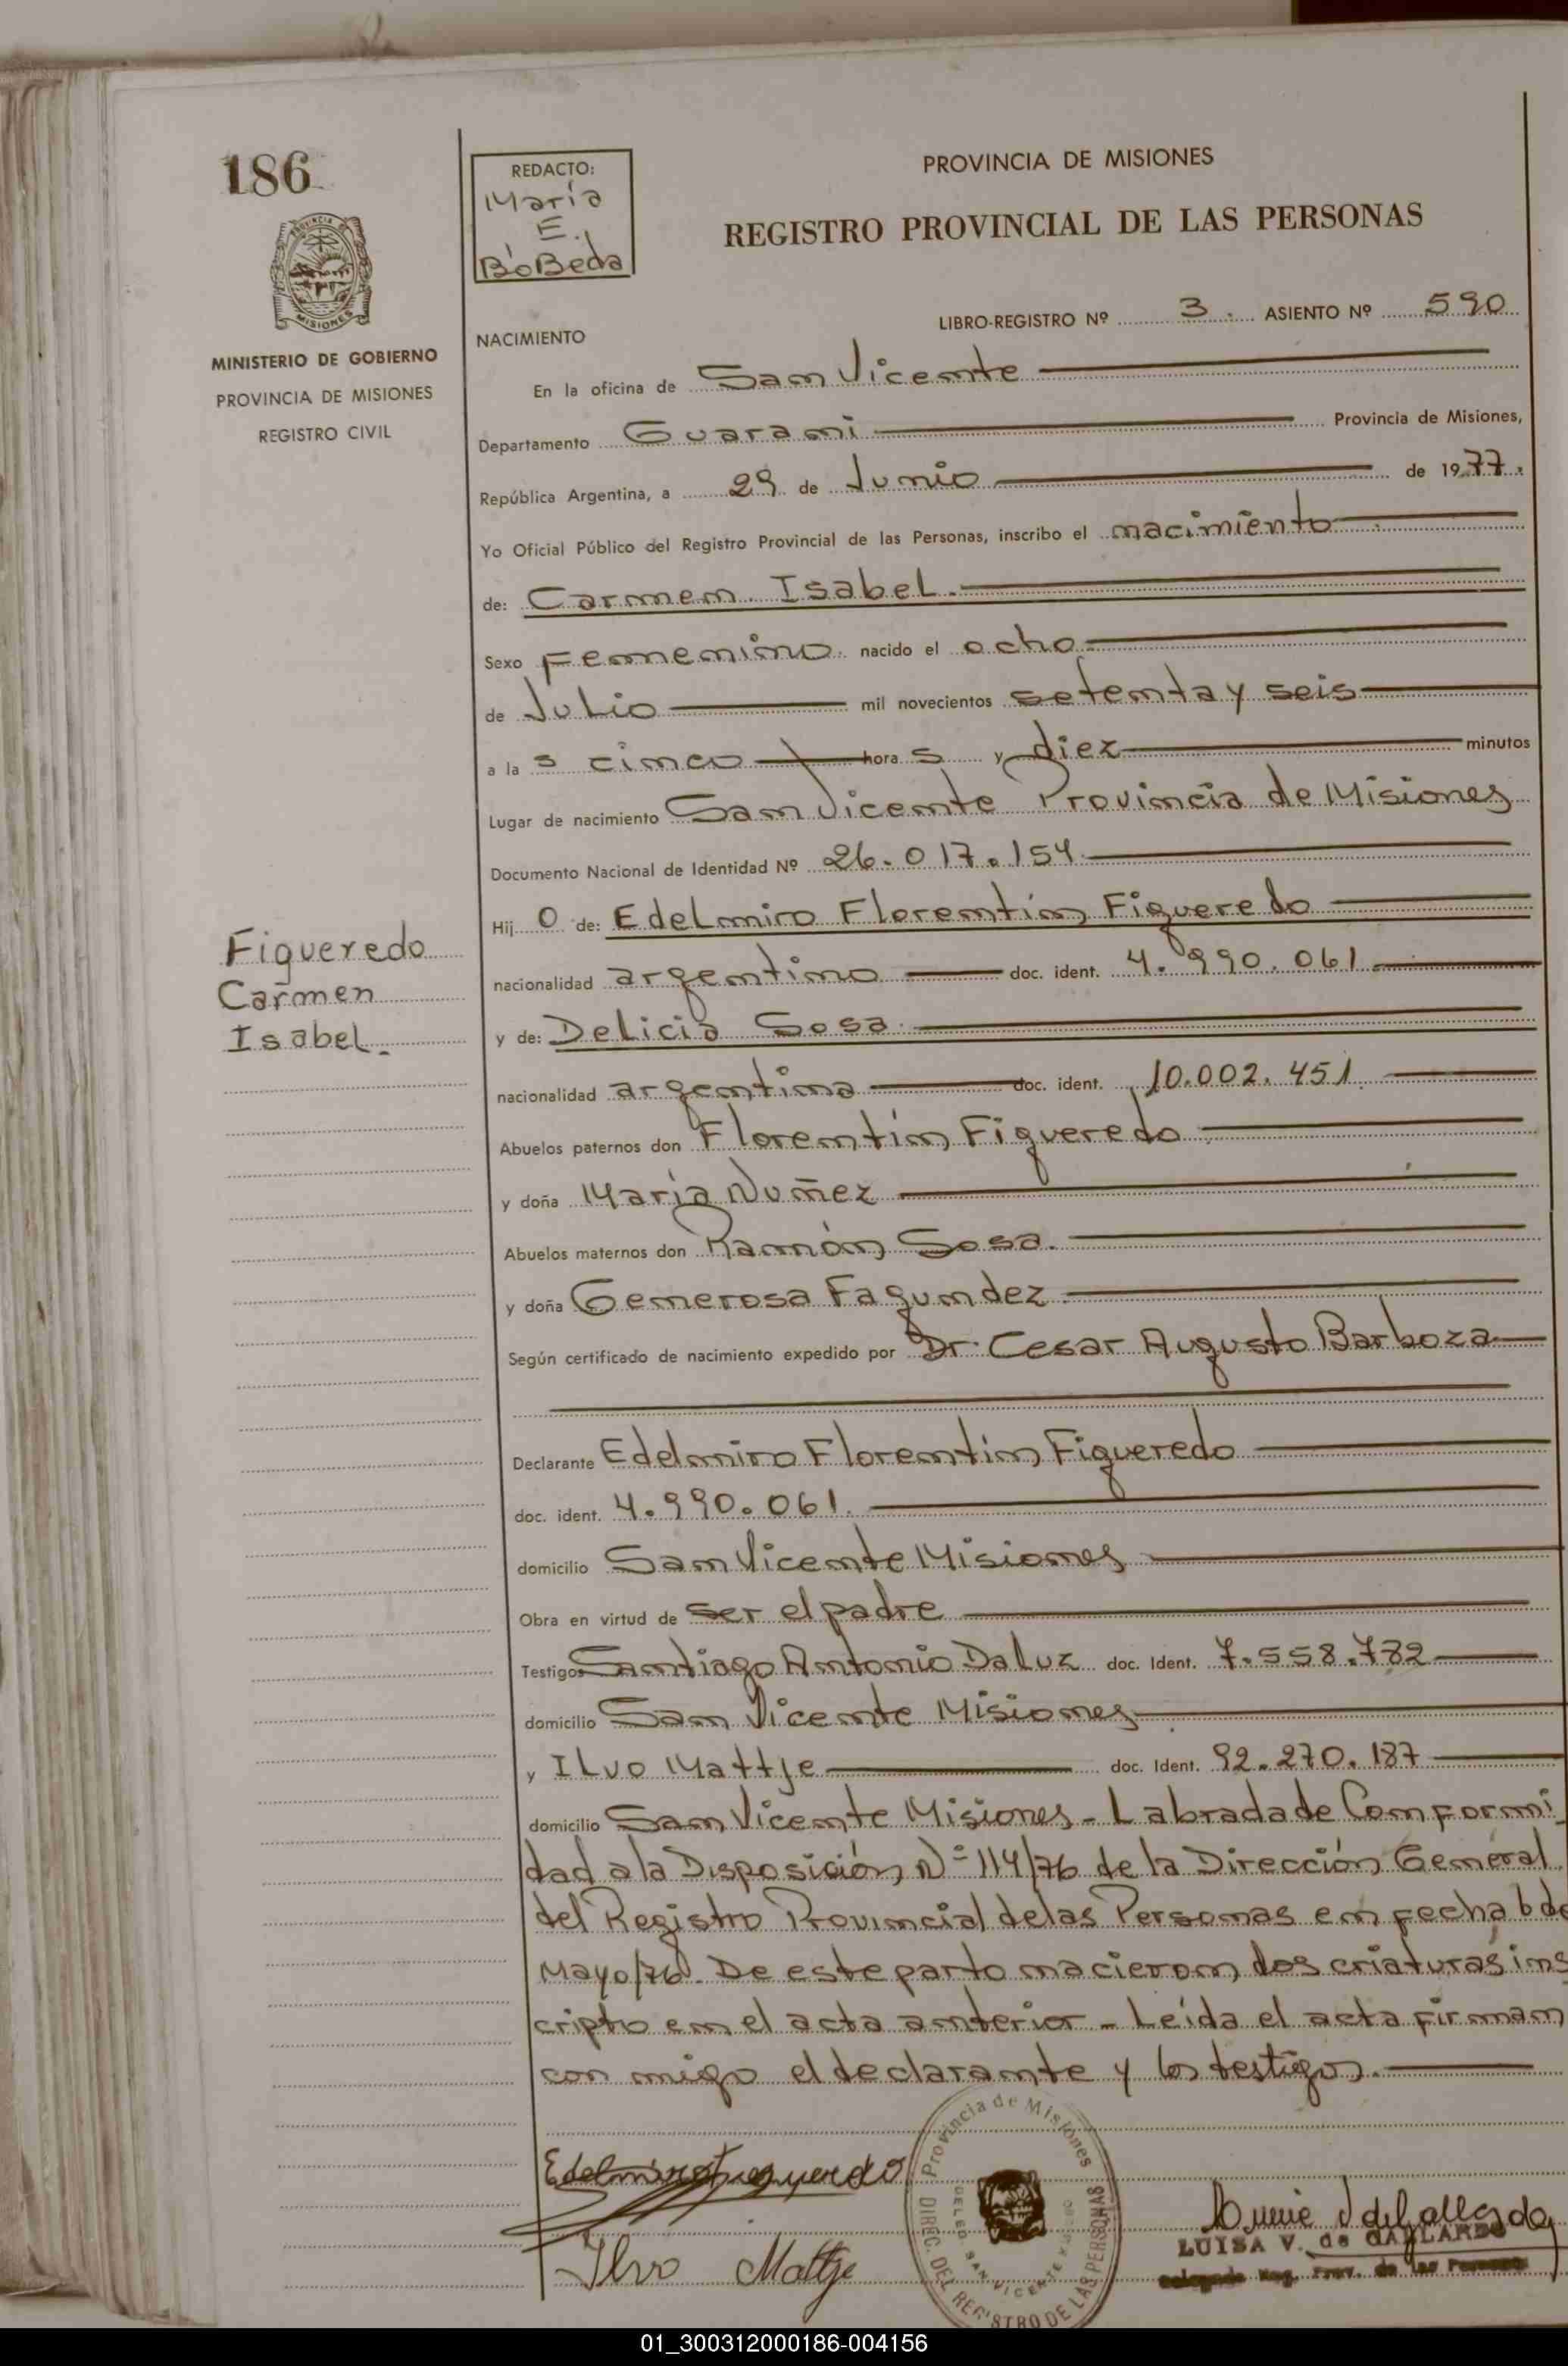 186
REDACTO:
María
E.
BóBeda
PROVINCIA DE MISIONES
REGISTRO PROVINCIAL DE LAS PERSONAS
PROVINCIA
MISIONES
MINISTERIO DE GOBIERNO
PROVINCIA DE MISIONES
REGISTRO CIVIL
LIBRO-REGISTRO Nº 3. ASIENTO Nº 590
NACIMIENTO
En la oficina de San Vicente
Departamento Guaraní Provincia de Misiones,
República Argentina, a 29 de Junio de 1977.
Yo Oficial Público del Registro Provincial de las Personas, inscribo el nacimiento
de: Carmen Isabel.
Sexo Femenino. nacido el ocho
de Julio mil novecientos setenta y seis
a la s cinco hora s y diez minutos
Lugar de nacimiento San Vicente Provincia de Misiones
Documento Nacional de Identidad Nº 26.017.154
Hij o de: Edelmiro Florentín Figueredo
nacionalidad argentino doc. ident. 4.990.061
y de: Delicia Sosa
nacionalidad argentina doc. ident. 10.002.451
Abuelos paternos don Florentín Figueredo
y doña María Nuñez
Abuelos maternos don Ramón Sosa.
y doña Generosa Fagundez
Según certificado de nacimiento expedido por Dr. Cesar Augusto Barboza
Declarante Edelmiro Florentín Figueredo
doc. ident. 4.990.061.
domicilio San Vicente Misiones
Obra en virtud de ser el padre
Testigos Santiago Antonio Da Luz doc. Ident. 7.558.782
domicilio San Vicente Misiones
y Ilvo Mattje doc. Ident. 92.270.187
domicilio San Vicente Misiones - Labrada de Conformi
dad a la Disposición Nº 114/76 de la Dirección General
del Registro Provincial de las Personas en fecha 6 de
Mayo/76. De este parto nacieron dos criaturas ins
cripto en el acta anterior - Leída el acta firman
con migo el declarante y los testigos.
Figueredo
Carmen
Isabel.
Edelmiro Figueredo
Ilvo Mattje
Provincia de Misiones
DELEG. SAN VICENTE
DIREC. DEL REGISTRO DE LAS PERSONAS
LUISA V. de GALLARDO
Delegada Reg. Prov. de las Personas
01_300312000186-004156